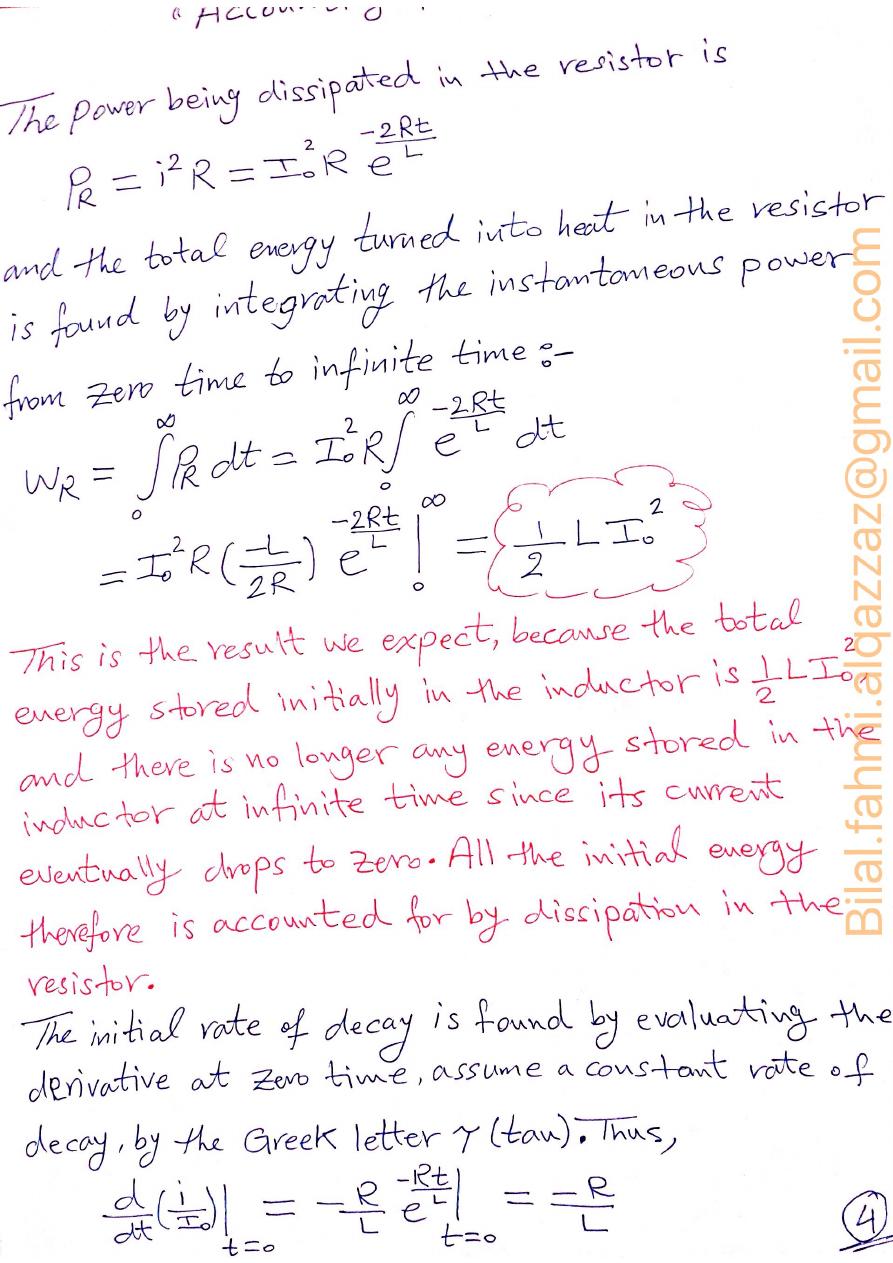 The power being dissipated in the resistor is
P_R = i² R = I₀² R e^(-2Rt/L)
and the total energy turned into heat in the resistor
is found by integrating the instantaneous power
from zero time to infinite time :-
W_R = ∫₀^∞ P_R dt = I₀² R ∫₀^∞ e^(-2Rt/L) dt
= I₀² R (-L/2R) e^(-2Rt/L) |₀^∞ = 1/2 L I₀²
This is the result we expect, because the total
energy stored initially in the inductor is 1/2 L I₀²,
and there is no longer any energy stored in the
inductor at infinite time since its current
eventually drops to zero. All the initial energy
therefore is accounted for by dissipation in the
resistor.
The initial rate of decay is found by evaluating the
derivative at zero time, assume a constant rate of
decay, by the Greek letter τ (tau). Thus,
d/dt (i/I₀)|_(t=0) = -R/L e^(-Rt/L)|_(t=0) = -R/L
4
Bilal.fahmi.alqazzaz@gmail.com